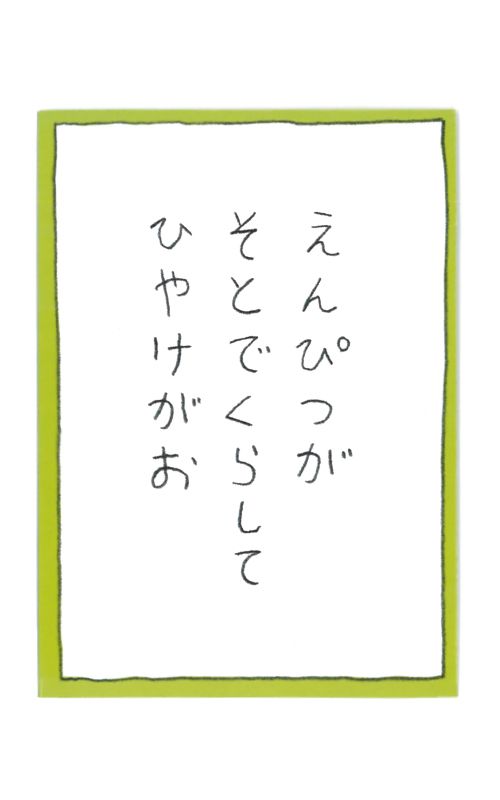 えんぴつが
そとでくらして
ひやけがお